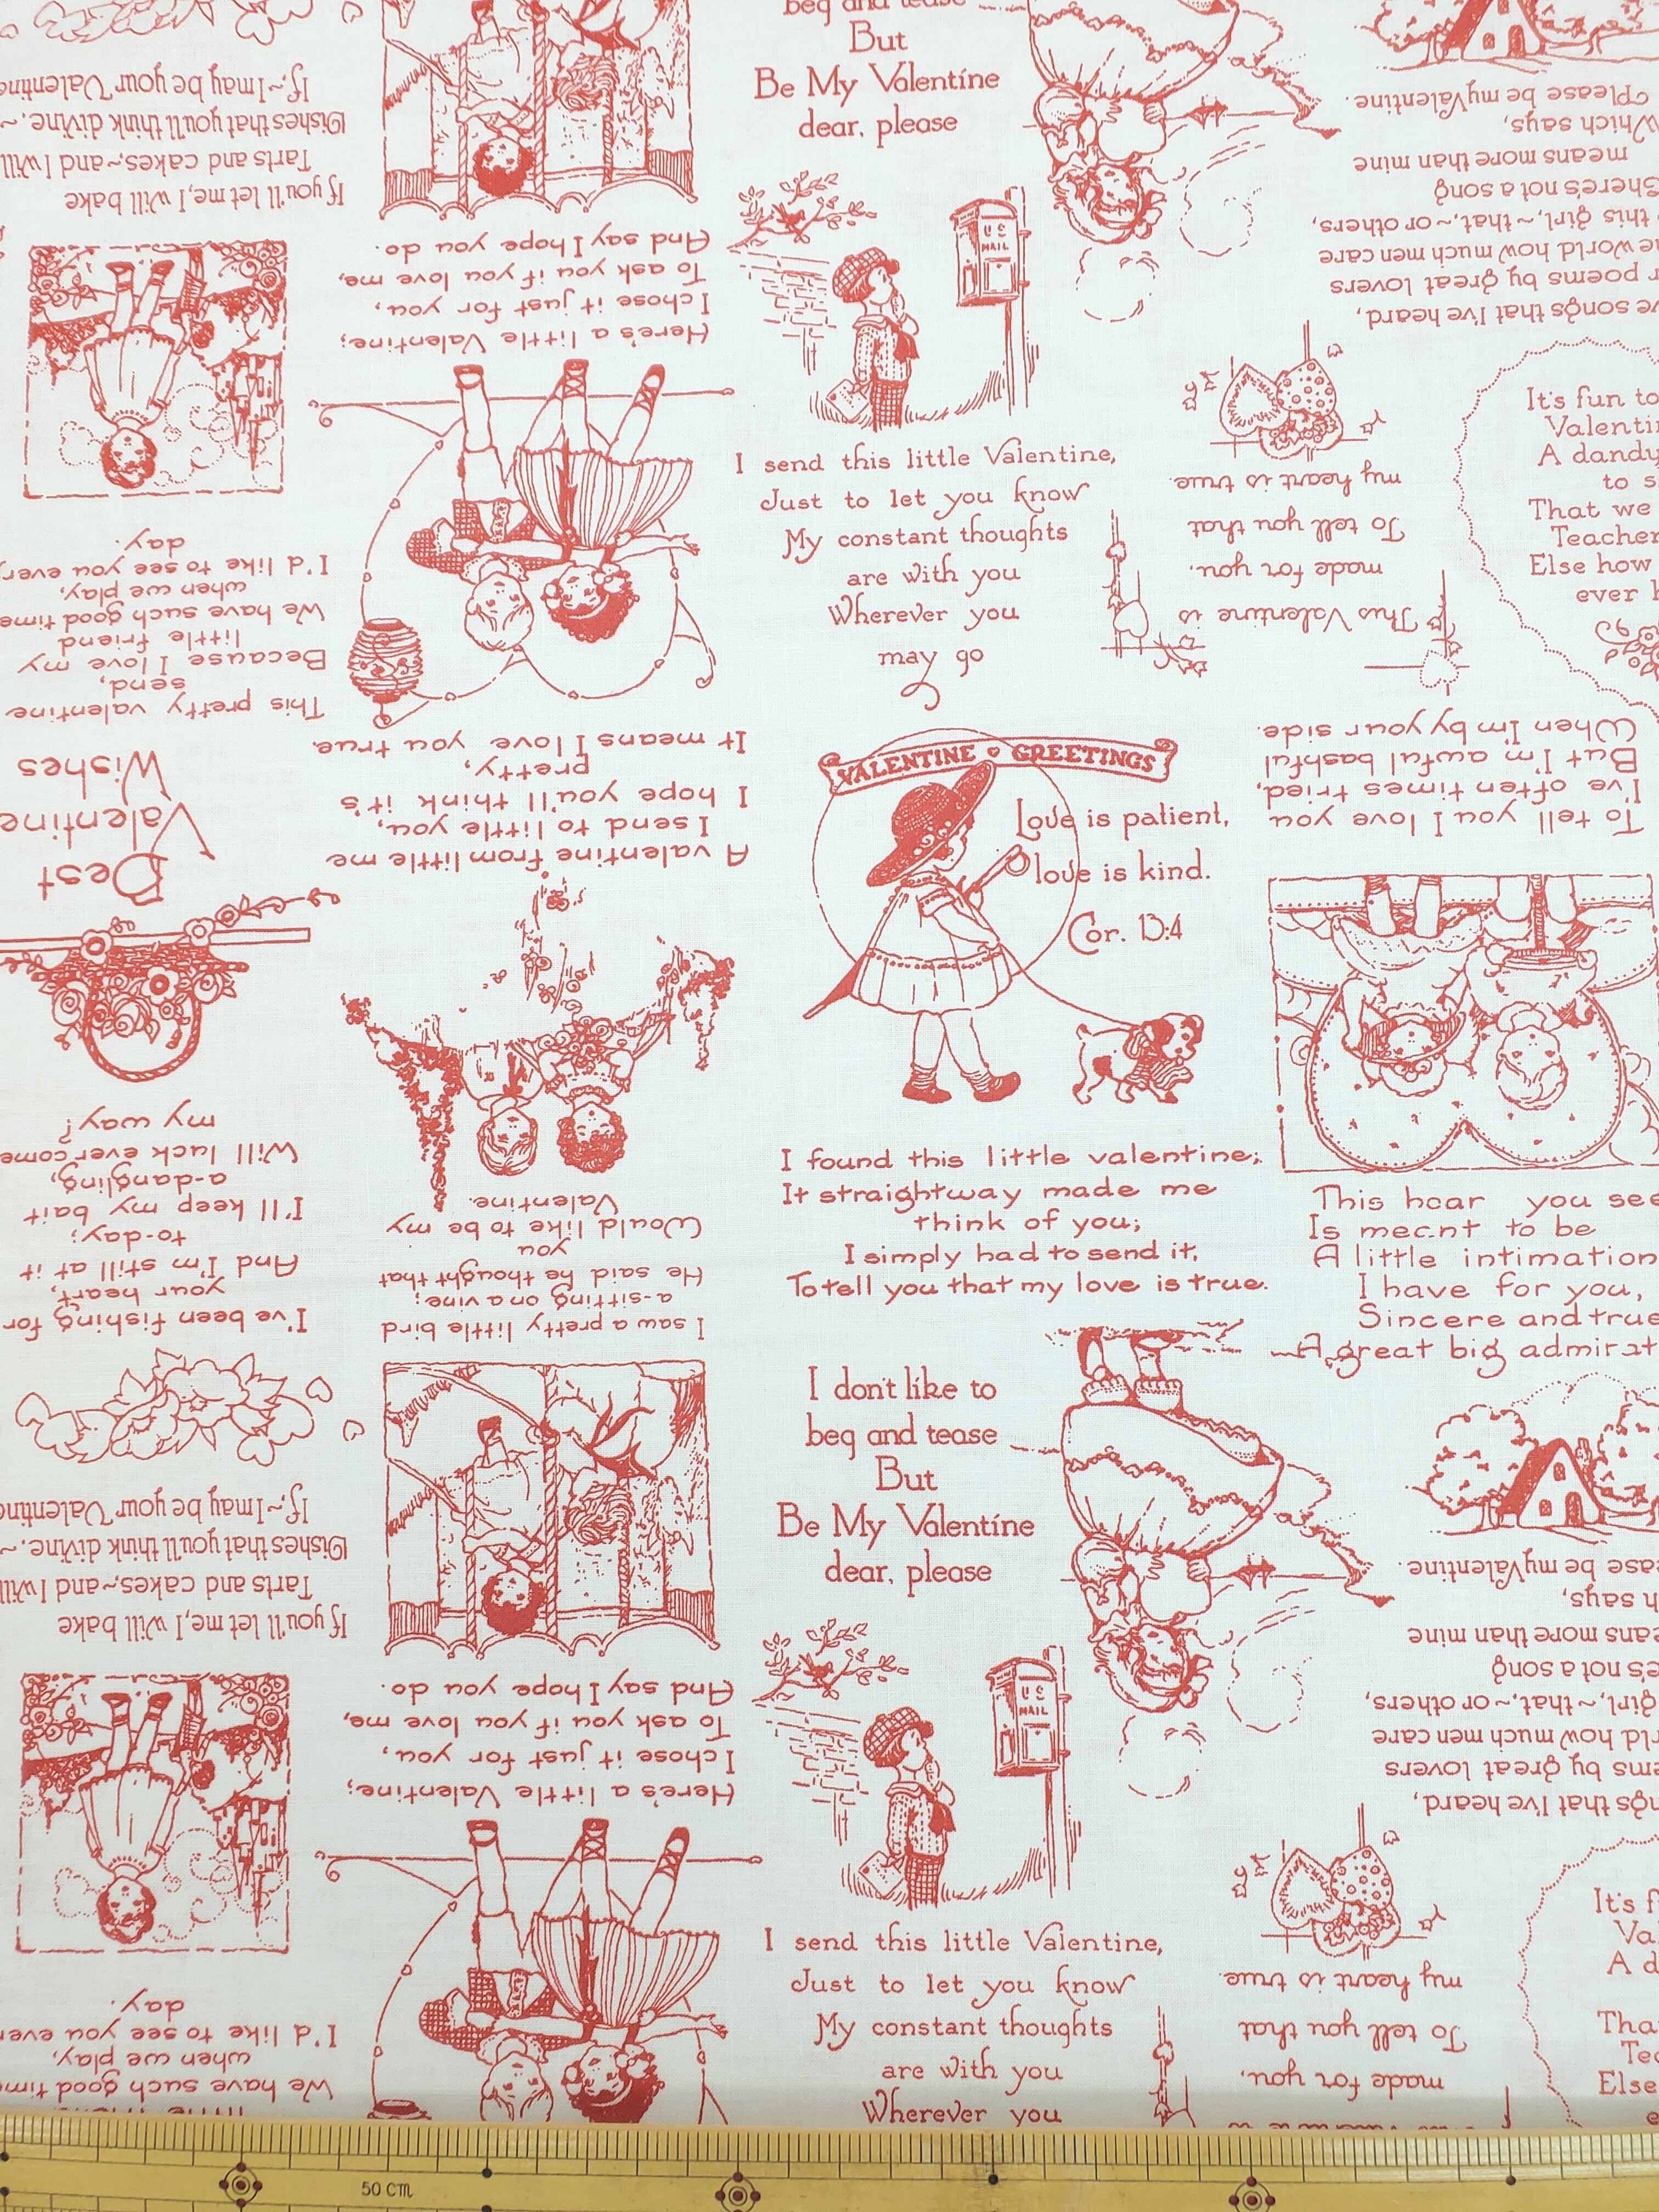 beg and tease
But
Be My Valentine
dear, please
U S
MAIL
I send this little Valentine,
Just to let you know
My constant thoughts
are with you
Wherever you
may go
VALENTINE GREETINGS
Love is patient,
love is kind.
Cor. 13:4
I found this little valentine;
It straightway made me
think of you;
I simply had to send it,
To tell you that my love is true.
I don't like to
beg and tease
But
Be My Valentine
dear, please
U S
MAIL
I send this little Valentine,
Just to let you know
My constant thoughts
are with you
Wherever you
It's fun to
A dandy
to
That we
Teacher
Else how
ever
This hear you see
Is meant to be
A little intimation
I have for you,
Sincere and true
A great big
It's
A
Else
If you'll let me, I will bake
Tarts and cakes,~and I will
Dishes that you'll think divine,~
If,~I may be your Valentine
Here's a little Valentine;
I chose it just for you,
To ask you if you love me,
And say I hope you do.
songs that I've heard,
poems by great lovers
world how much men care
this girl,~that,~or others,
There's not a song
means more than mine
Which says,
Please be my Valentine.
This Valentine is
made for you,
To tell you that
my heart is true.
This pretty valentine
send,
Because I love my
little friend
We have such good time
when we play,
I'd like to see you every
day.
Best
Valentine
Wishes
A valentine from little me
I send to little you,
I hope you'll think it's
pretty,
It means I love you true.
To tell you I love you
I've often times tried,
But I'm awful bashful
When I'm by your side.
I've been fishing for
your heart,
And I'm still at it
to-day;
I'll keep my bait
a-dangling,
Will luck ever come
my way?
I saw a pretty little bird
a-sitting on a vine;
He said he thought that
you
Would like to be my
Valentine.
If you'll let me, I will bake
Tarts and cakes,~and I will
Dishes that you'll think divine,~
If,~I may be your Valentine
Here's a little Valentine;
I chose it just for you,
To ask you if you love me,
And say I hope you do.
that I've heard,
by great lovers
how much men care
girl,~that,~or others,
not a song
more than mine
says,
be my Valentine.
made for you,
To tell you that
my heart is true.
We have such good time
when we play,
I'd like to see you every
day.
50 cm